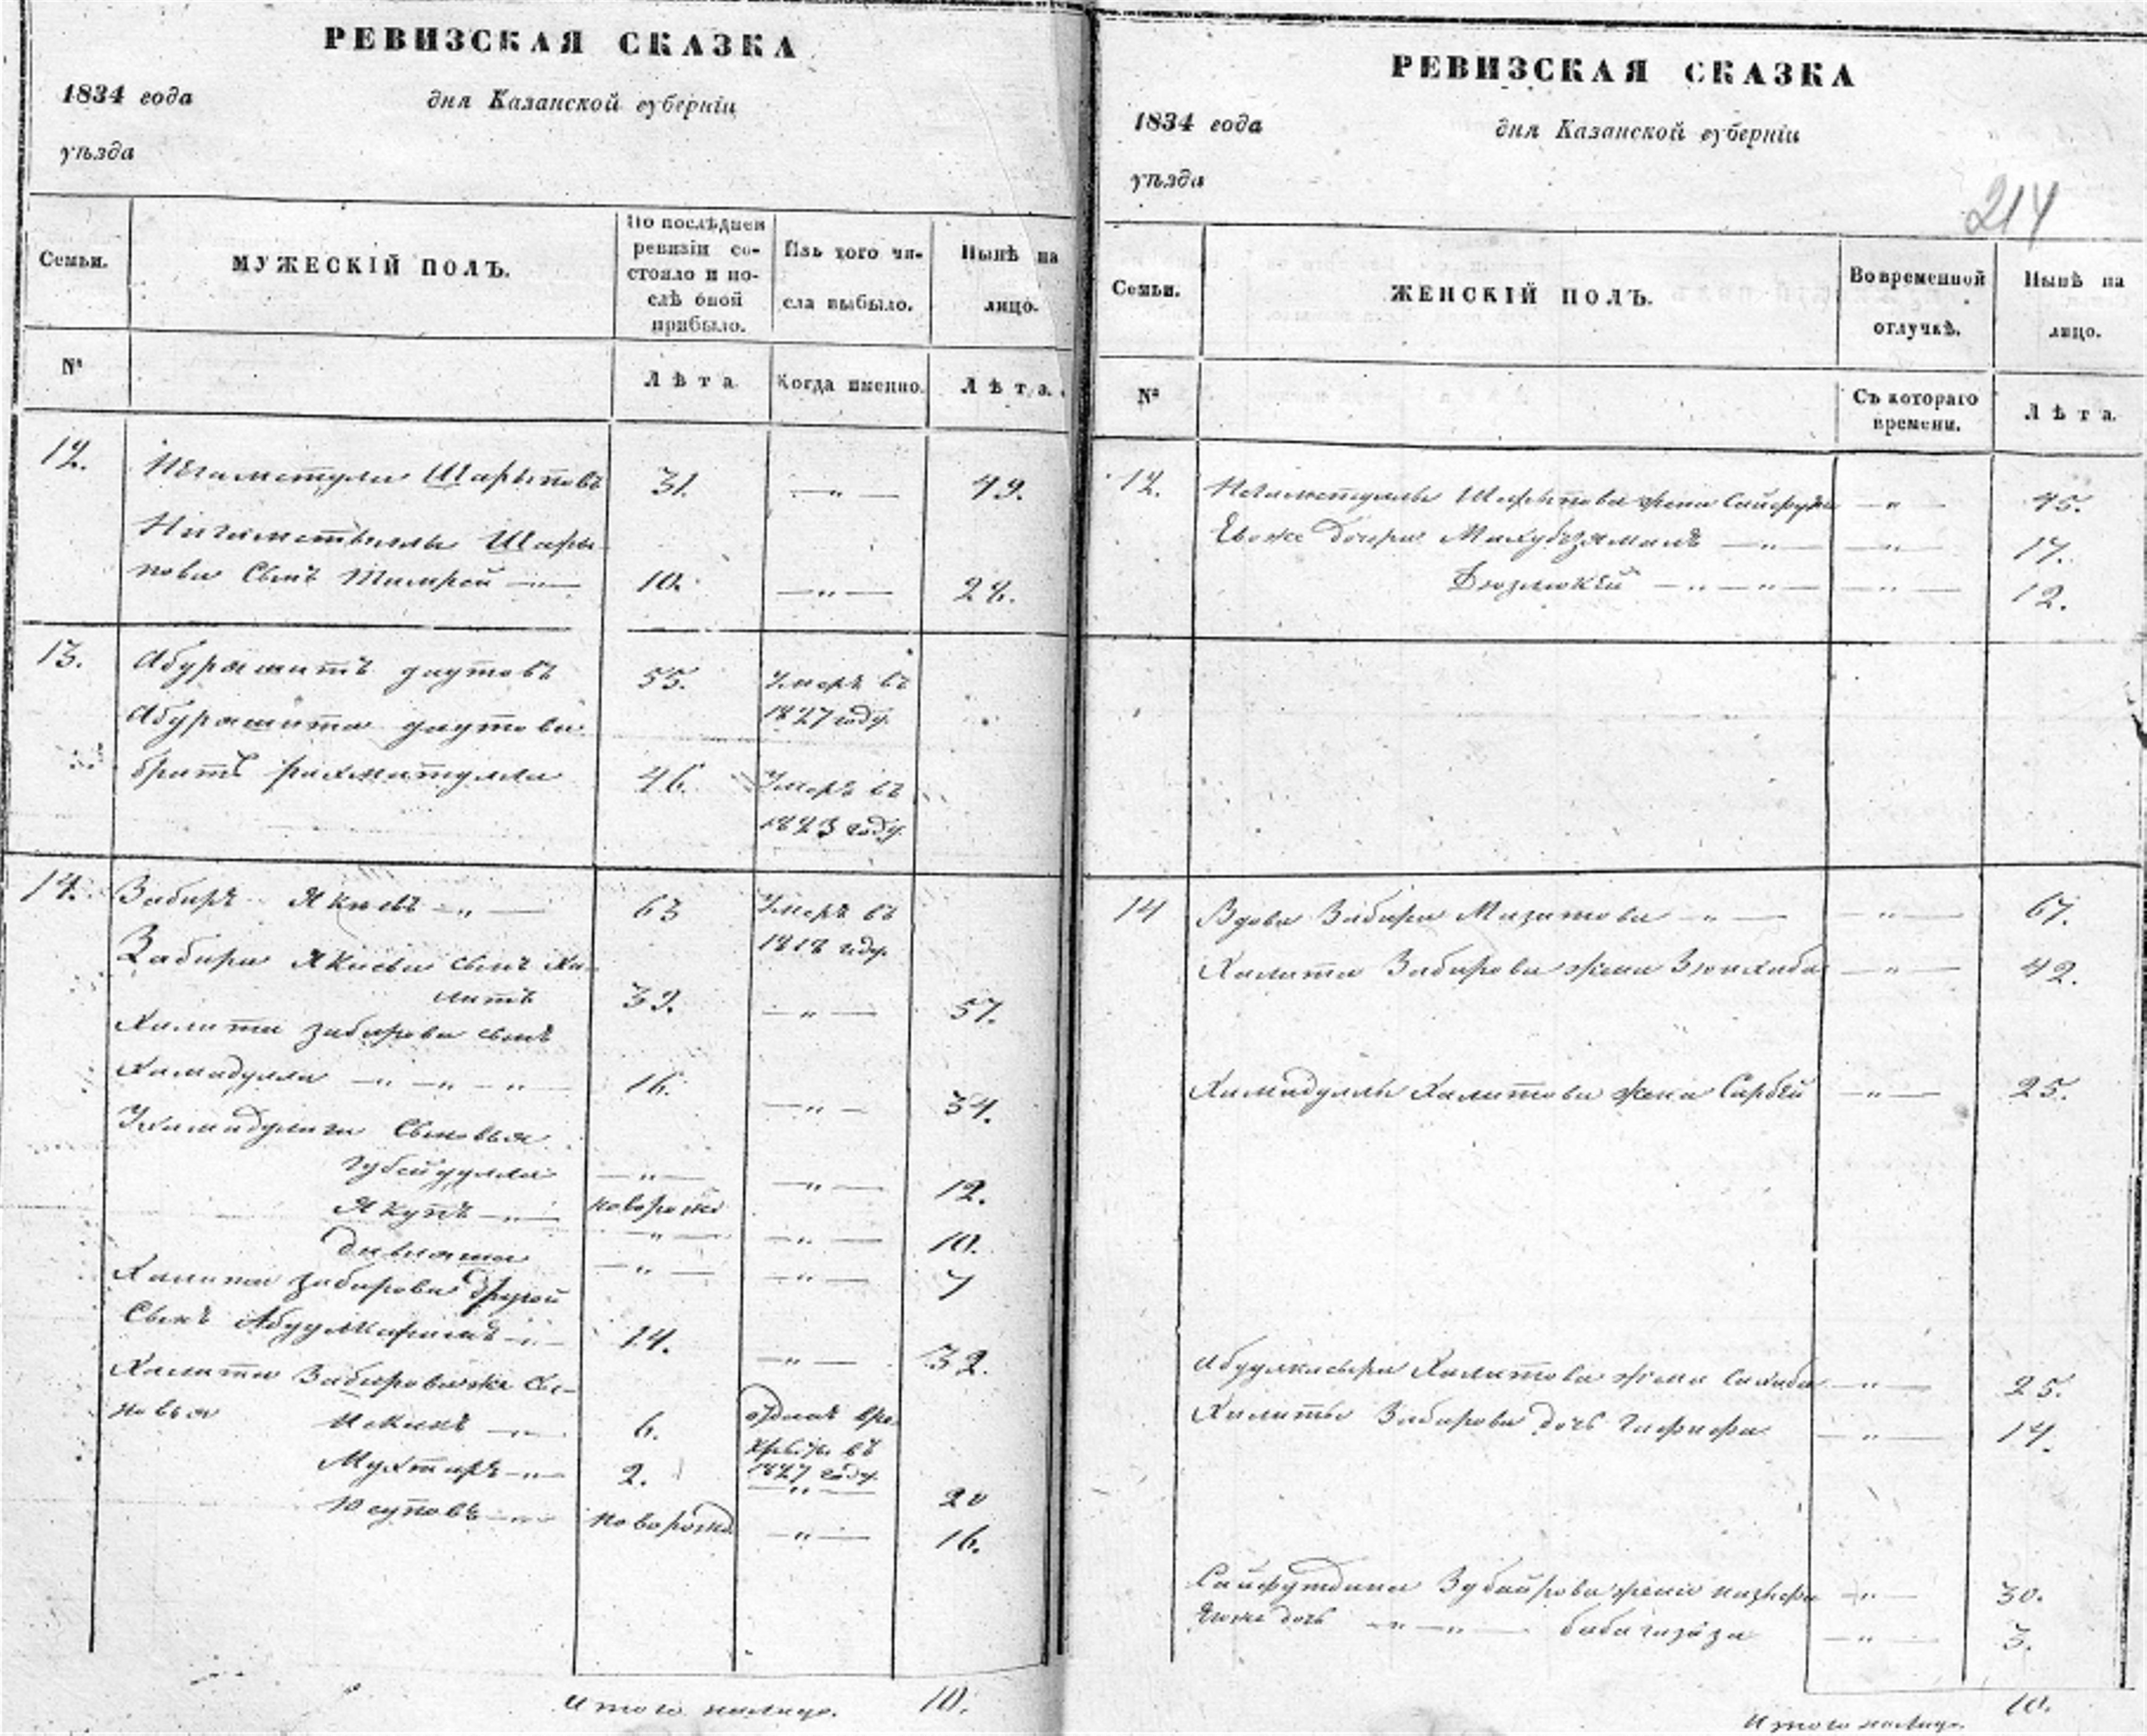 РЕВИЗСКАЯ СКАЗКА
1834 года дня Казанской губерніи
уѣзда
Семьи. МУЖЕСКІЙ ПОЛЪ. По послѣдней ревизіи состояло и послѣ оной прибыло. Изъ того числа выбыло. Нынѣ на лицо.
№ Лѣта Когда именно. Лѣта.
12. Негаметулла Шарыповъ 31. —„— 49.
Нигаметуллы Шары-
пова сынъ Тимрей —„— 10. —„— 28.
13. Абурашитъ даутовъ 55. Умеръ въ
Абурашита даутова 1827 году.
братъ рахматулла 46. Умеръ въ
1823 году.
14. Забиръ Якиевъ —„— 63 Умеръ въ
1818 году.
Забира Якиева сынъ Ха-
литъ 39. —„— 57.
Халита забирова сынъ
Хамидулла —„—„—„— 16. —„— 34.
Хамидуллы сыновья
губейдулла —„— —„— 12.
Якупъ —„— новорожд —„— 10.
давлаша —„— —„— 7
Халита забирова другой
сынъ Абдулкаримъ —„— 14. —„— 32.
Халита Забирова же сы-
новья Искакъ —„— 6. отданъ въ ре
круты въ
1827 году.
Мухтаръ —„— 2. —„— 20
Юсуповъ —„— новорожд —„— 16.
Итого налицо. 10.
РЕВИЗСКАЯ СКАЗКА
1834 года дня Казанской губерніи
уѣзда
214
Семьи. ЖЕНСКІЙ ПОЛЪ. Во временной отлучкѣ. Нынѣ на лицо.
№ Съ котораго времени. Лѣта
12. Негаметуллы Шарыпова жена —„— 45.
Ево же дочери Махубзямалъ —„— —„— 17.
Дюзлюкей —„—„— —„— 12.
14 Вдова Забира Мазитова —„— —„— 67.
Халита Забирова жена Зюлхаба —„— 42.
Хамидуллы Халитова жена Сарбей —„— 25.
Халитова жена Сахиба —„— 25.
Халиты Забирова дочь —„— 14.
Сайфутдина Зубаирова жена —„— 30.
Ево же дочь —„—„— —„— 3.
Итого налицо. 10.